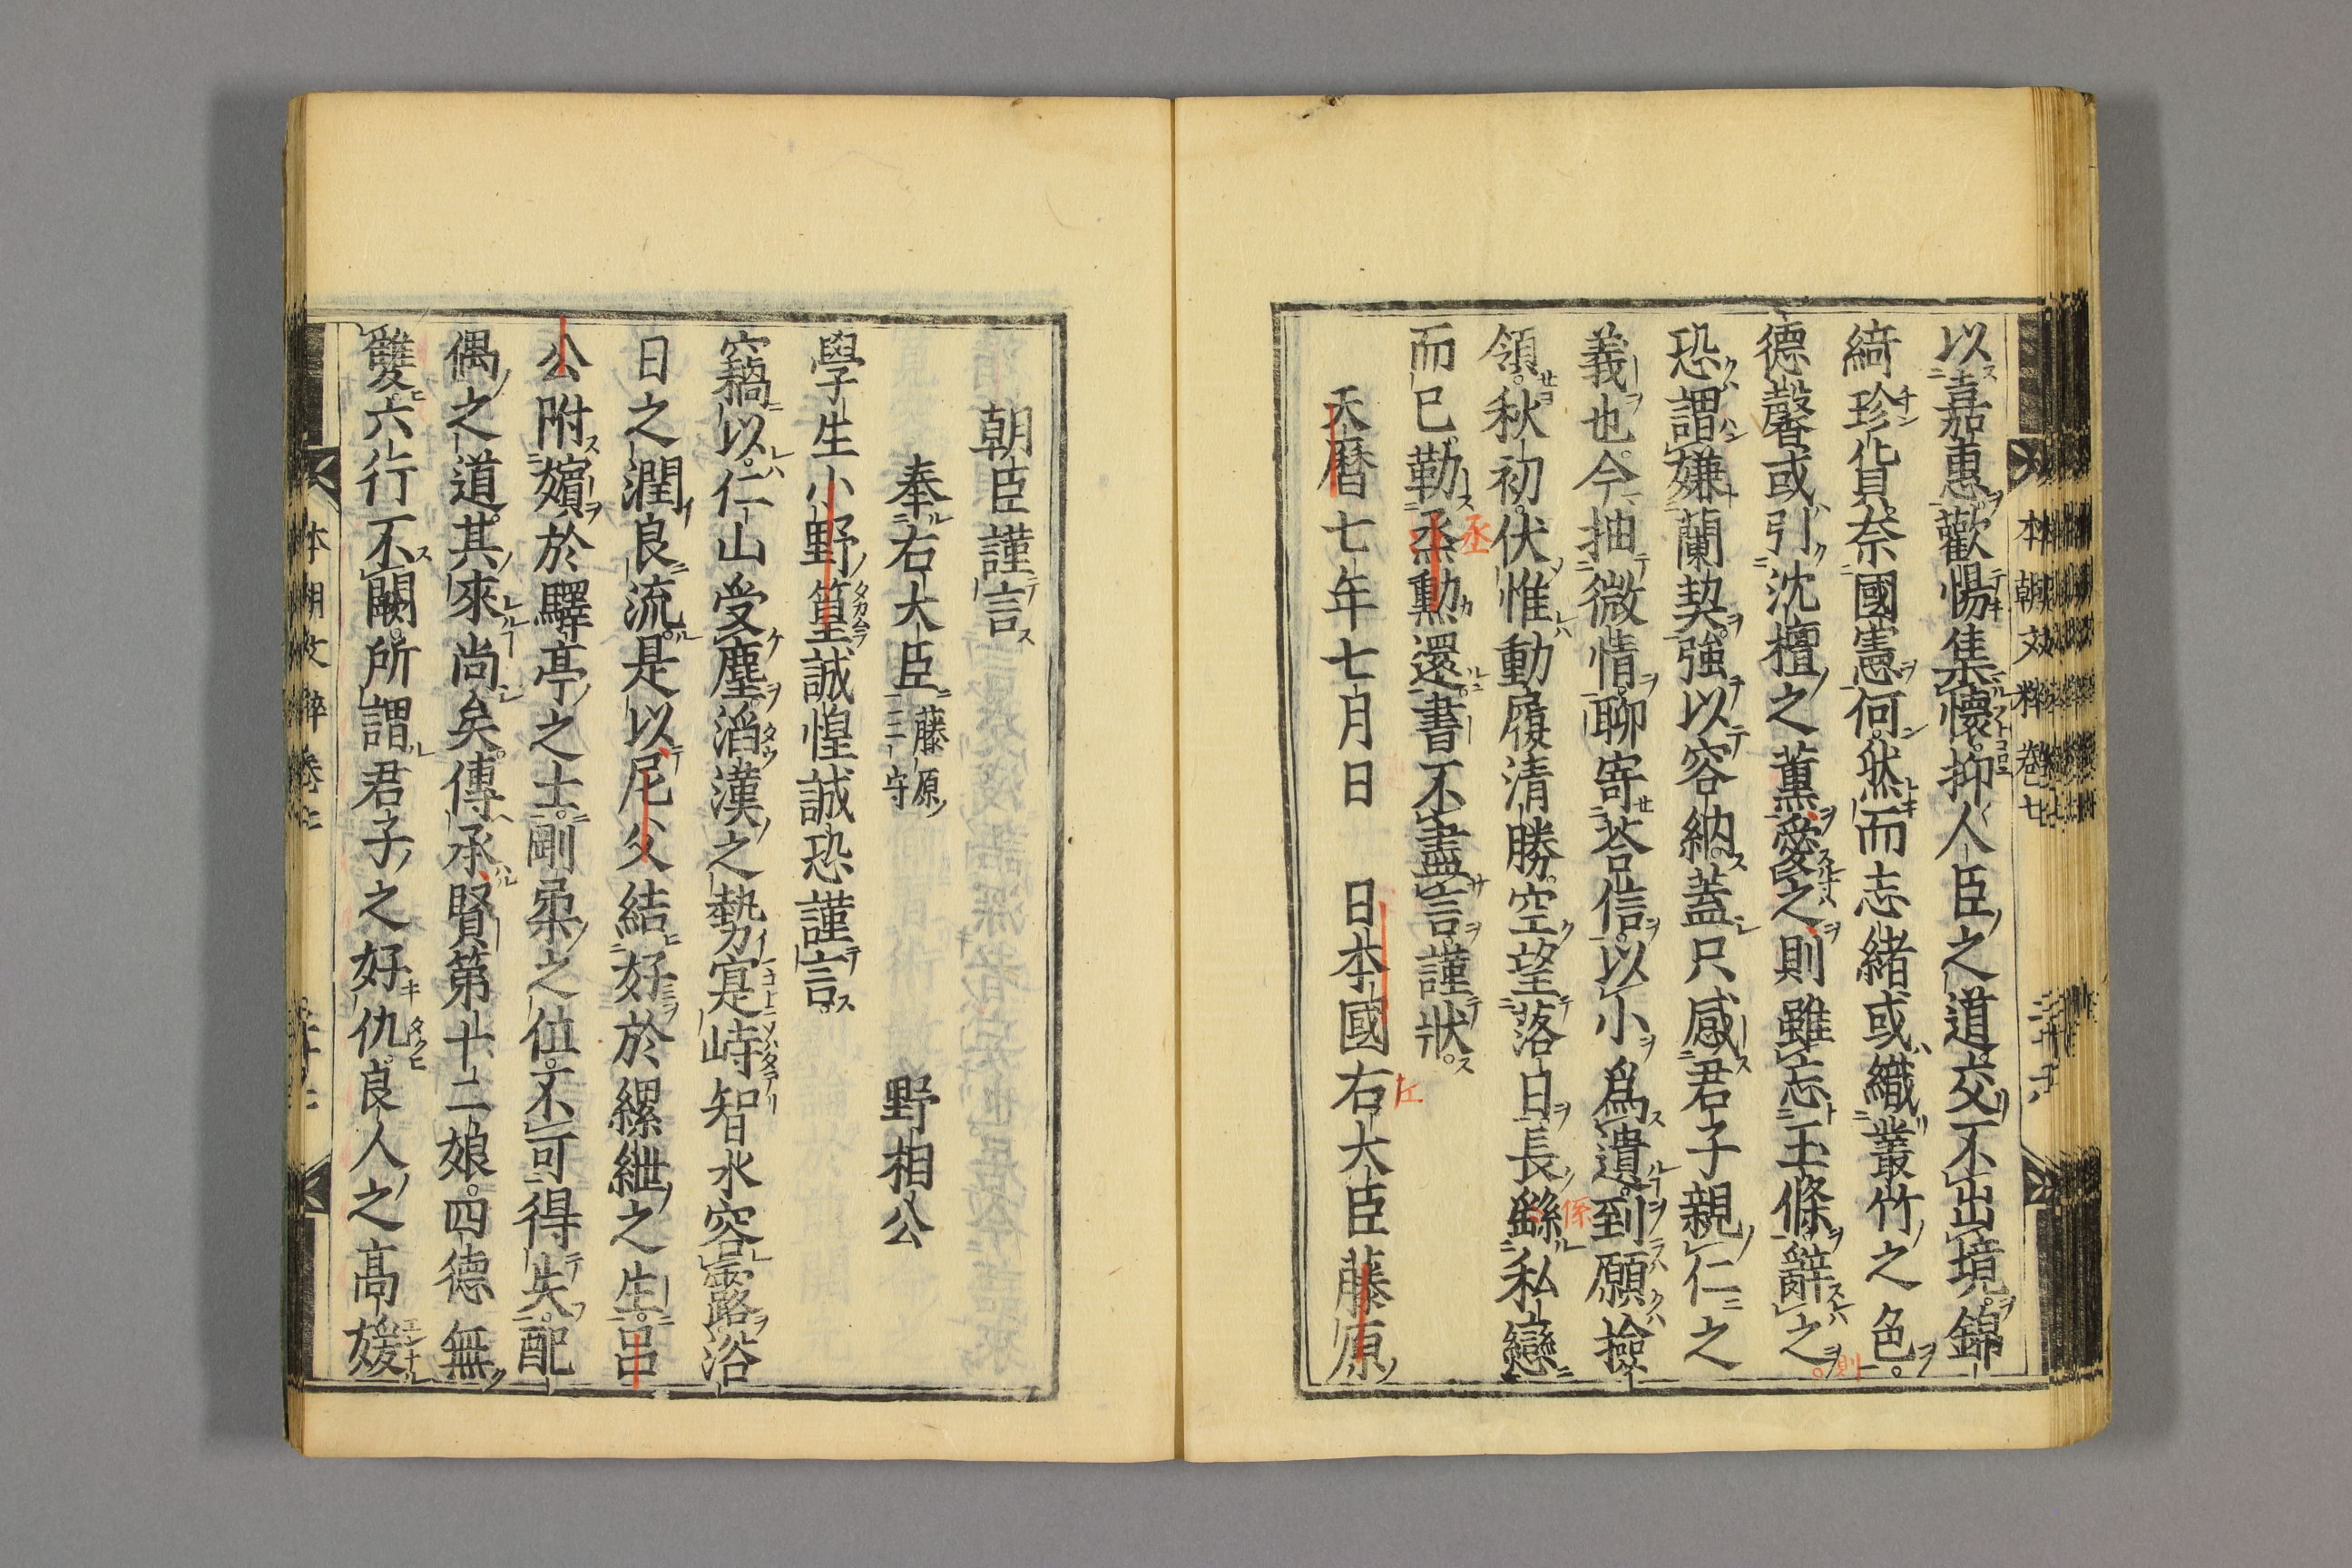 以嘉惠歡惕集懷抑人臣之道交不出境錦
綺珍貨奈國憲何然而志緒或織叢竹之色
德馨或引沈檀之薰愛之則雖忘玉條辭之
恐謂嫌蘭契強以容納蓋只感君子親仁之
義也今抽微情聊寄荅信以小爲遺到願撿
領秋初伏惟動履清勝空望落日長繇私戀
而已勒烝勲還書不盡言謹狀
天曆七年七月日　日本國右大臣藤原
朝臣謹言
奉右大臣藤原三守　野相公
學生小野篁誠惶誠恐謹言
竊以仁山受塵滔漢之勢寔峙智水容露浴
日之潤良流是以尼父結好於縲紲之生呂
公附嬪於驛亭之士剛柔之位不可得失配
偶之道其來尚矣傳承賢第十二娘四德無
雙六行不闕所謂君子之好仇良人之高媛
本朝文粹卷七
本朝文粹卷七
丞
係
則
左